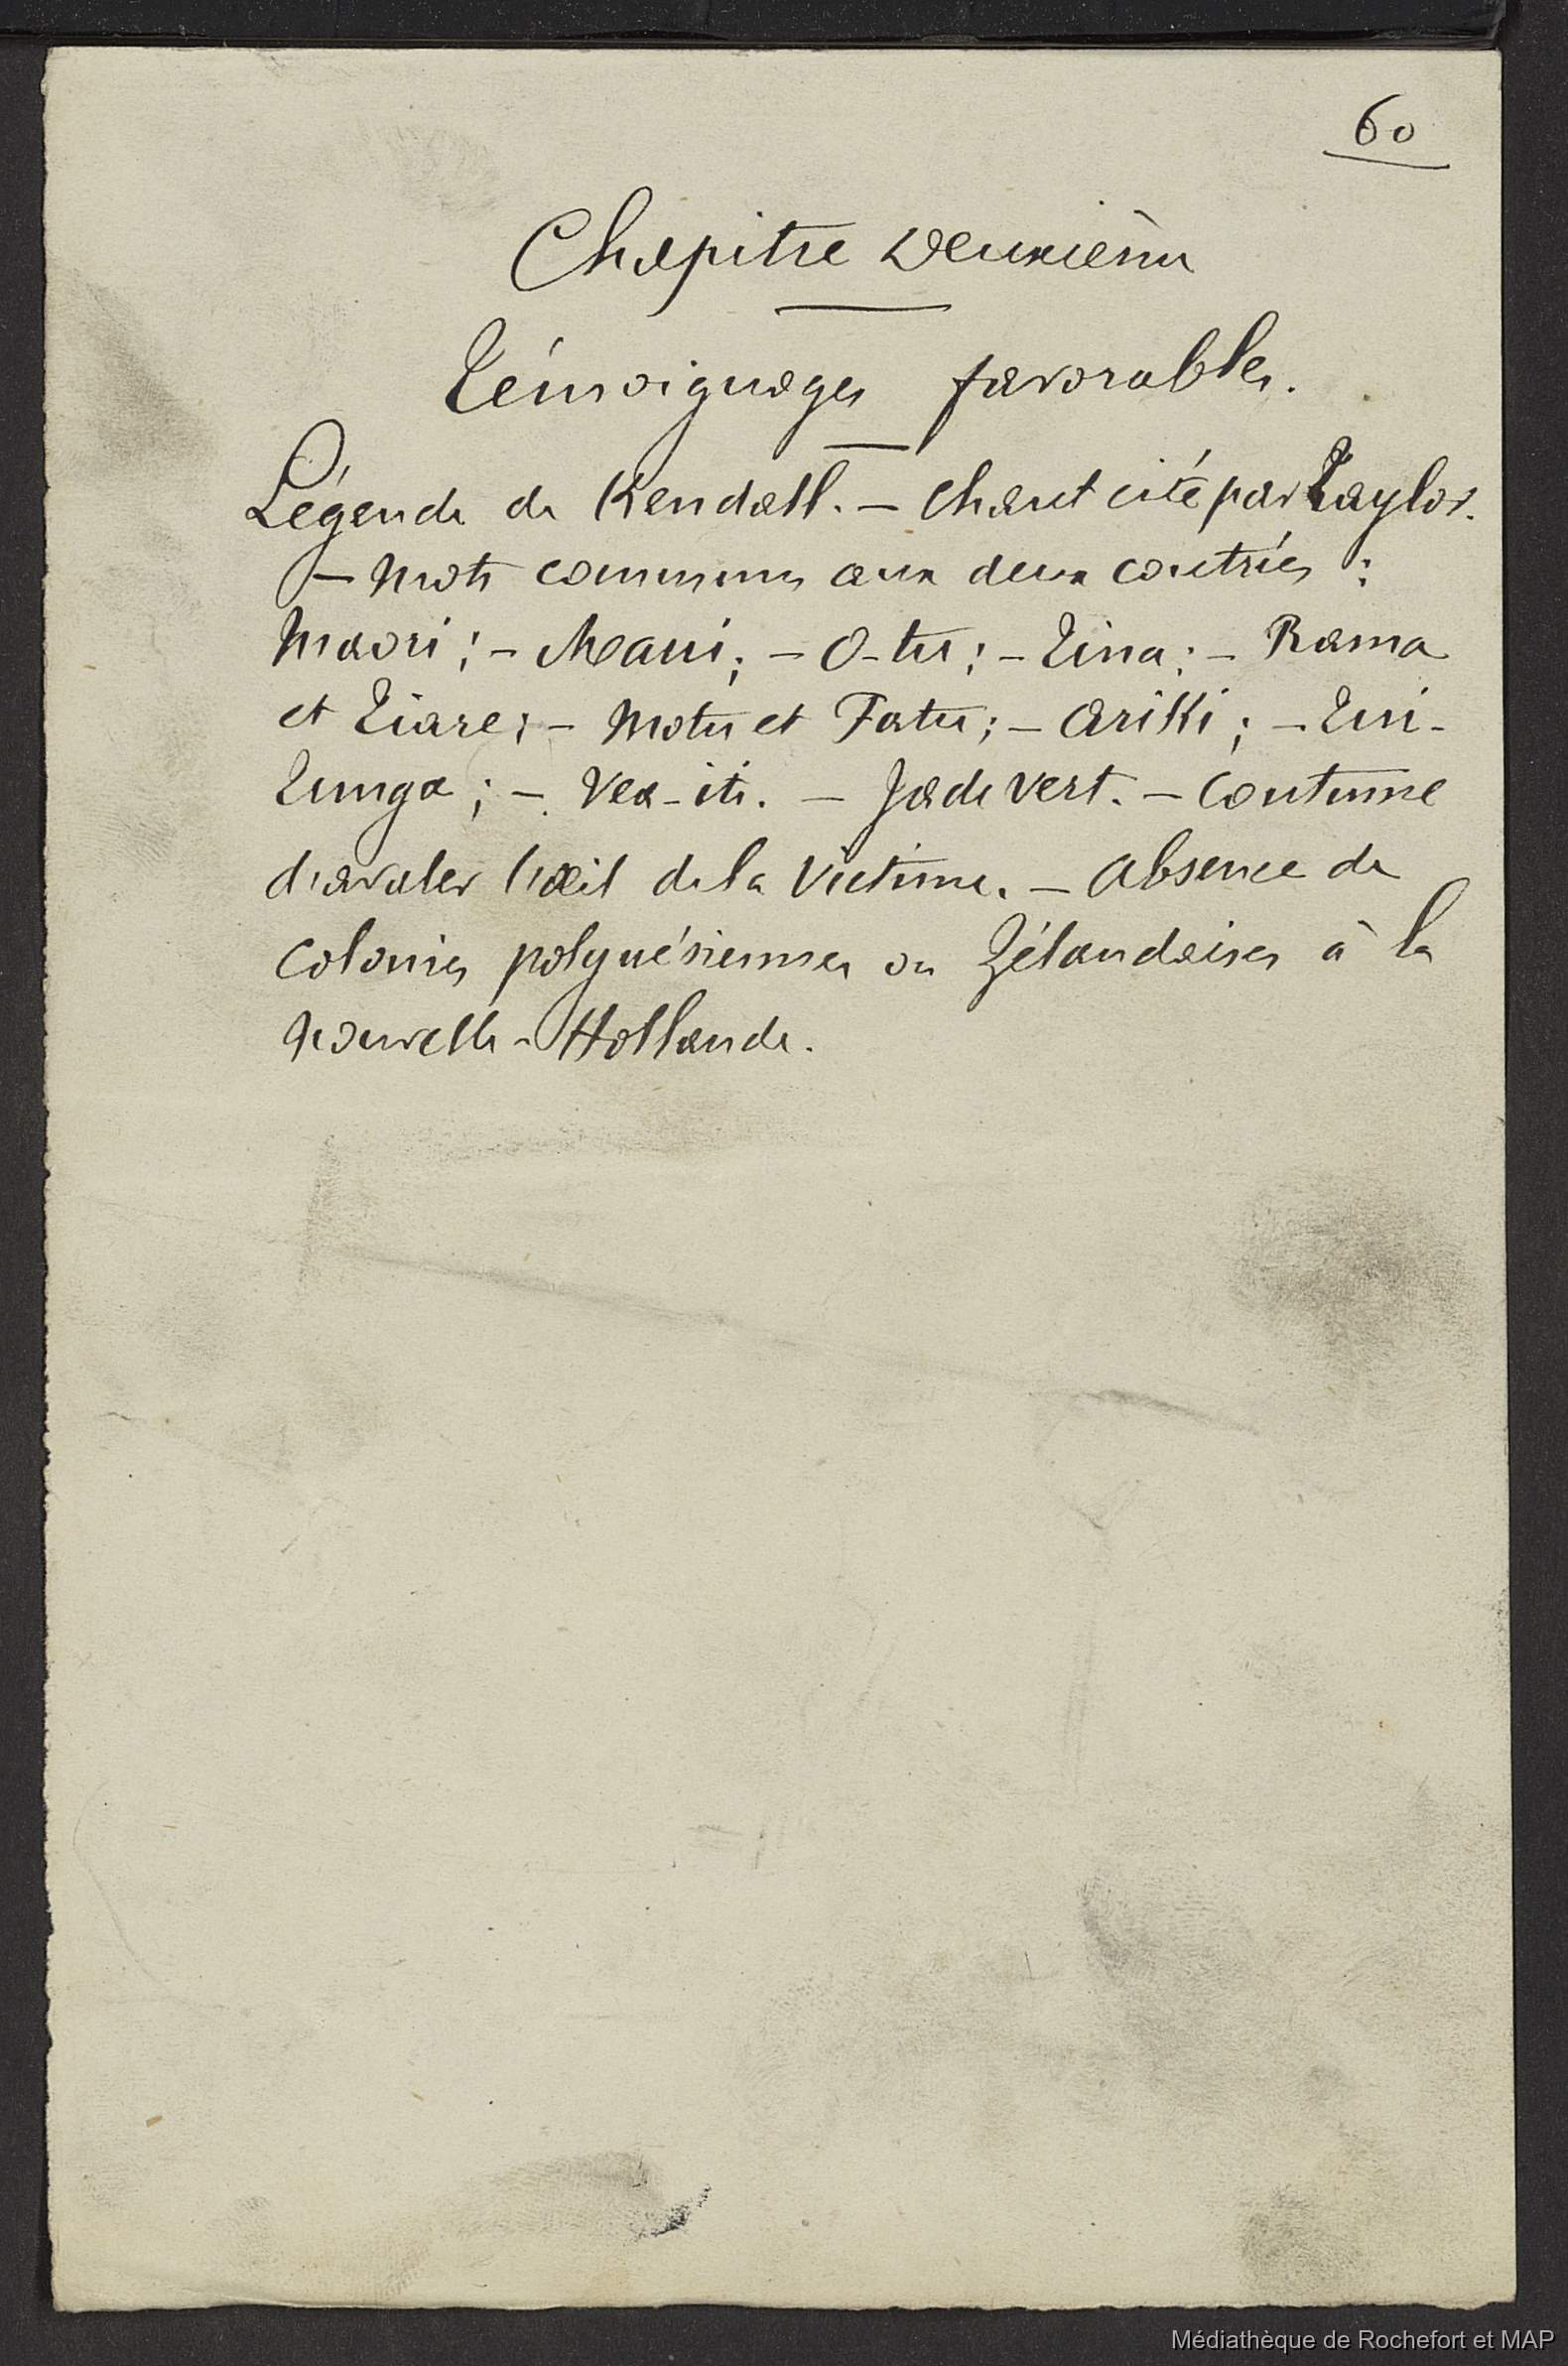 60
Chapitre Deuxième
Témoignages favorables.
Légende de Kendall. — Chant cité par Taylor.
— Mots communs aux deux contrées :
Maori ; — Maui ; — O-tu ; — Tina ; — Rama
et Tiare ; — Motu et Fatu ; — Ariki ; — Tui-
Tunga ; — Vea-iti. — Jade vert. — Coutume
d'avaler l'œil de la victime. — Absence de
colonies polynésiennes ou Zélandaises à la
Nouvelle-Hollande.
Médiathèque de Rochefort et MAP